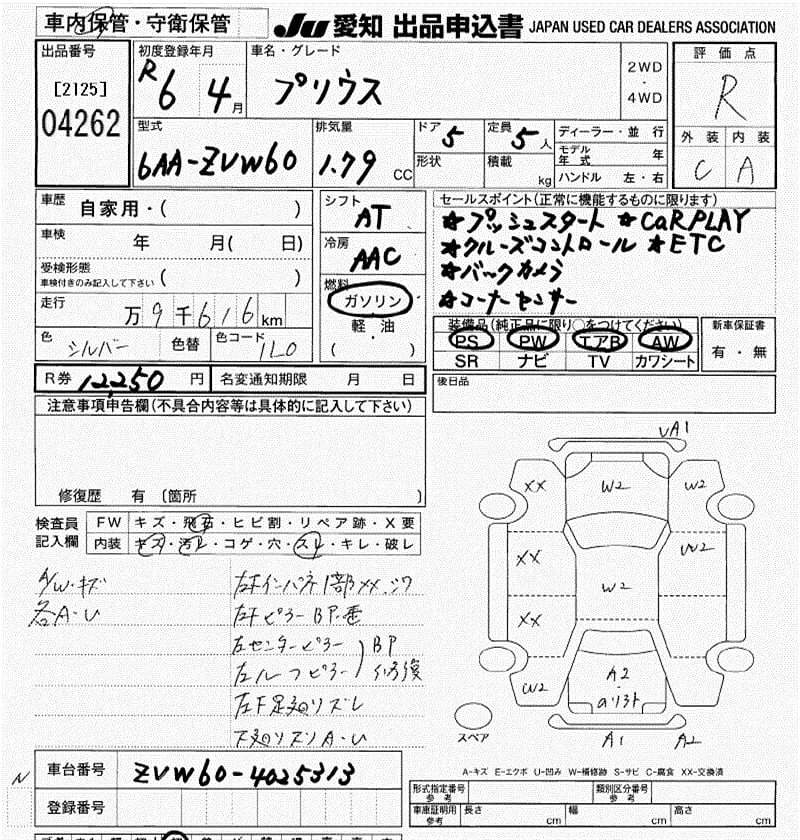 車内保管・守衛保管
JU 愛知 出品申込書 JAPAN USED CAR DEALERS ASSOCIATION
出品番号
[2125]
04262
初度登録年月
R6 4月
車名・グレード
プリウス
2WD
・
4WD
評価点
R
外装 内装
C A
型式
6AA-ZVW60
排気量
1.79 CC
ドア 5
形状
定員 5 人
積載 kg
ディーラー・並行
モデル年式 年
ハンドル 左・右
車歴 自家用・( )
車検 年 月( 日)
受検形態
車検付きのみ記入して下さい ( )
走行 万9千616km
色 シルバー 色替 色コード 1L0
シフト
AT
冷房
AAC
燃料
ガソリン
・
軽油
( )
セールスポイント(正常に機能するものに限ります)
★プッシュスタート ★CaRPLAY
★クルーズコントロール ★ETC
★バックカメラ
★コーナーセンサー
装備品(純正品に限り○をつけてください)
PS PW エアB AW
SR ナビ TV カワシート
新車保証書
有・無
R券 12,250円 名変通知期限 月 日
後日品
注意事項申告欄(不具合内容等は具体的に記入して下さい)
修復歴 有 〔箇所 〕
検査員記入欄
FW キズ・飛石・ヒビ割・リペア跡・X要
内装 キズ・汚レ・コゲ・穴・スレ・キレ・破レ
A/W・キズ
各A・U
左Fインパネ1部XX、シワ
左Fピラー BP・歪
左センターピラー
左ルーフピラー
BP
修復
VA1
XX W2 W2
XX W2
W2
XX
W2 A2
A1 A2
スペア
A-キズ E-エクボ U-凹み W-補修跡 S-サビ C-腐食 XX-交換済
車台番号 ZVW60-4025313
登録番号
N
形式指定番号
参考
類別区分番号
参考
車庫証明用
参考
長さ cm 幅 cm 高さ cm